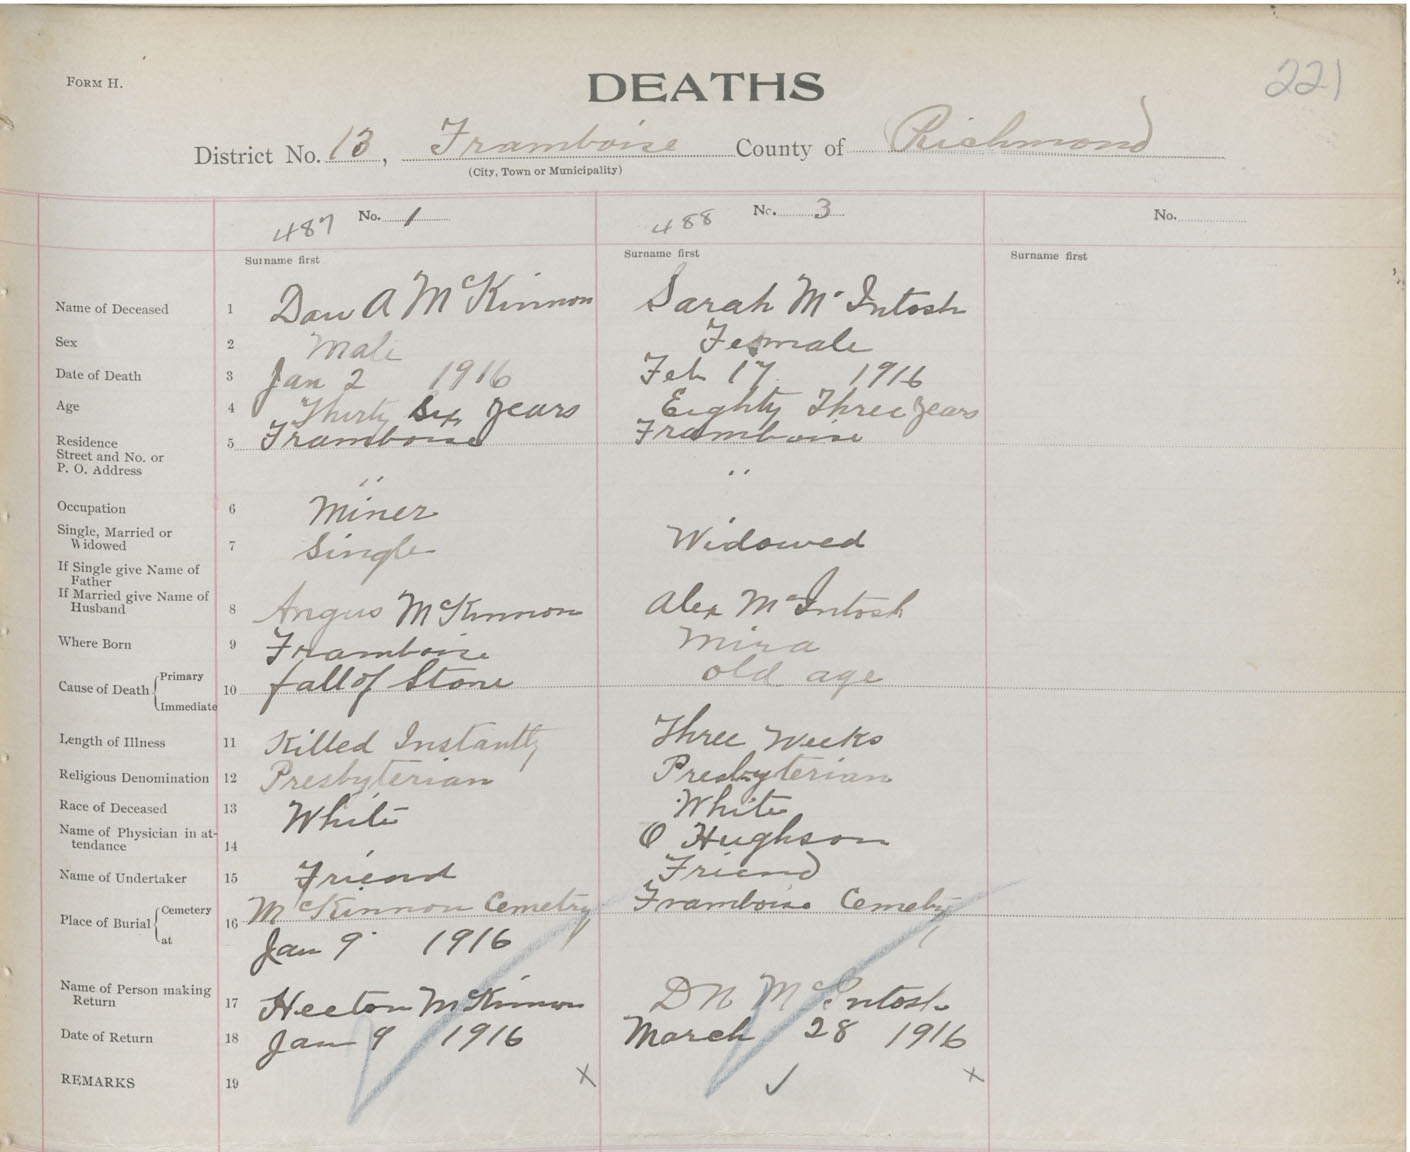 221
FORM H.
DEATHS
District No. 13, Framboise County of Richmond
(City, Town or Municipality)
487 No. 1 488 No. 3 No.
Surname first Surname first Surname first
Name of Deceased 1 Dan A McKinnon Sarah McIntosh
Sex 2 Male Female
Date of Death 3 Jan 2 1916 Feb 17 1916
Age 4 Thirty Six years Eighty Three years
Residence 5 Framboise Framboise
Street and No. or
P. O. Address " "
Occupation 6 Miner
Single, Married or
Widowed 7 Single Widowed
If Single give Name of
Father
If Married give Name of
Husband 8 Angus McKinnon Alex McIntosh
Where Born 9 Framboise Mira
Cause of Death Primary 10 fall of Stone old age
Immediate
Length of Illness 11 Killed Instantly Three Weeks
Religious Denomination 12 Presbyterian Presbyterian
Race of Deceased 13 White White
Name of Physician in at-
tendance 14 O Hughson
Name of Undertaker 15 Friend Friend
Place of Burial Cemetery 16 McKinnon Cemetry Framboise Cemetry
at Jan 9 1916
Name of Person making
Return 17 Hector McKinnon D N McIntosh
Date of Return 18 Jan 9 1916 March 28 1916
REMARKS 19 x ✓ x